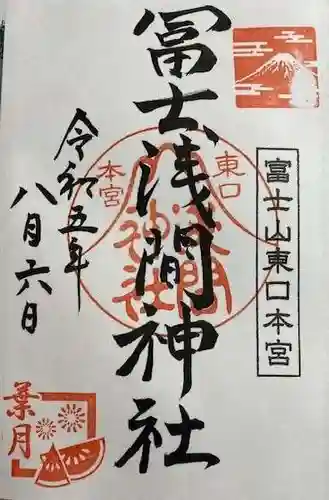 冨士浅間神社
東口
本宮
浅間
神社
富士山東口本宮
令和五年
八月六日
葉月